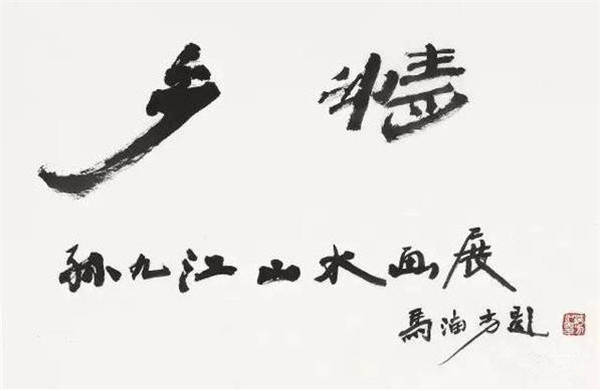 乡情
孙九江山水画展
馬海方题